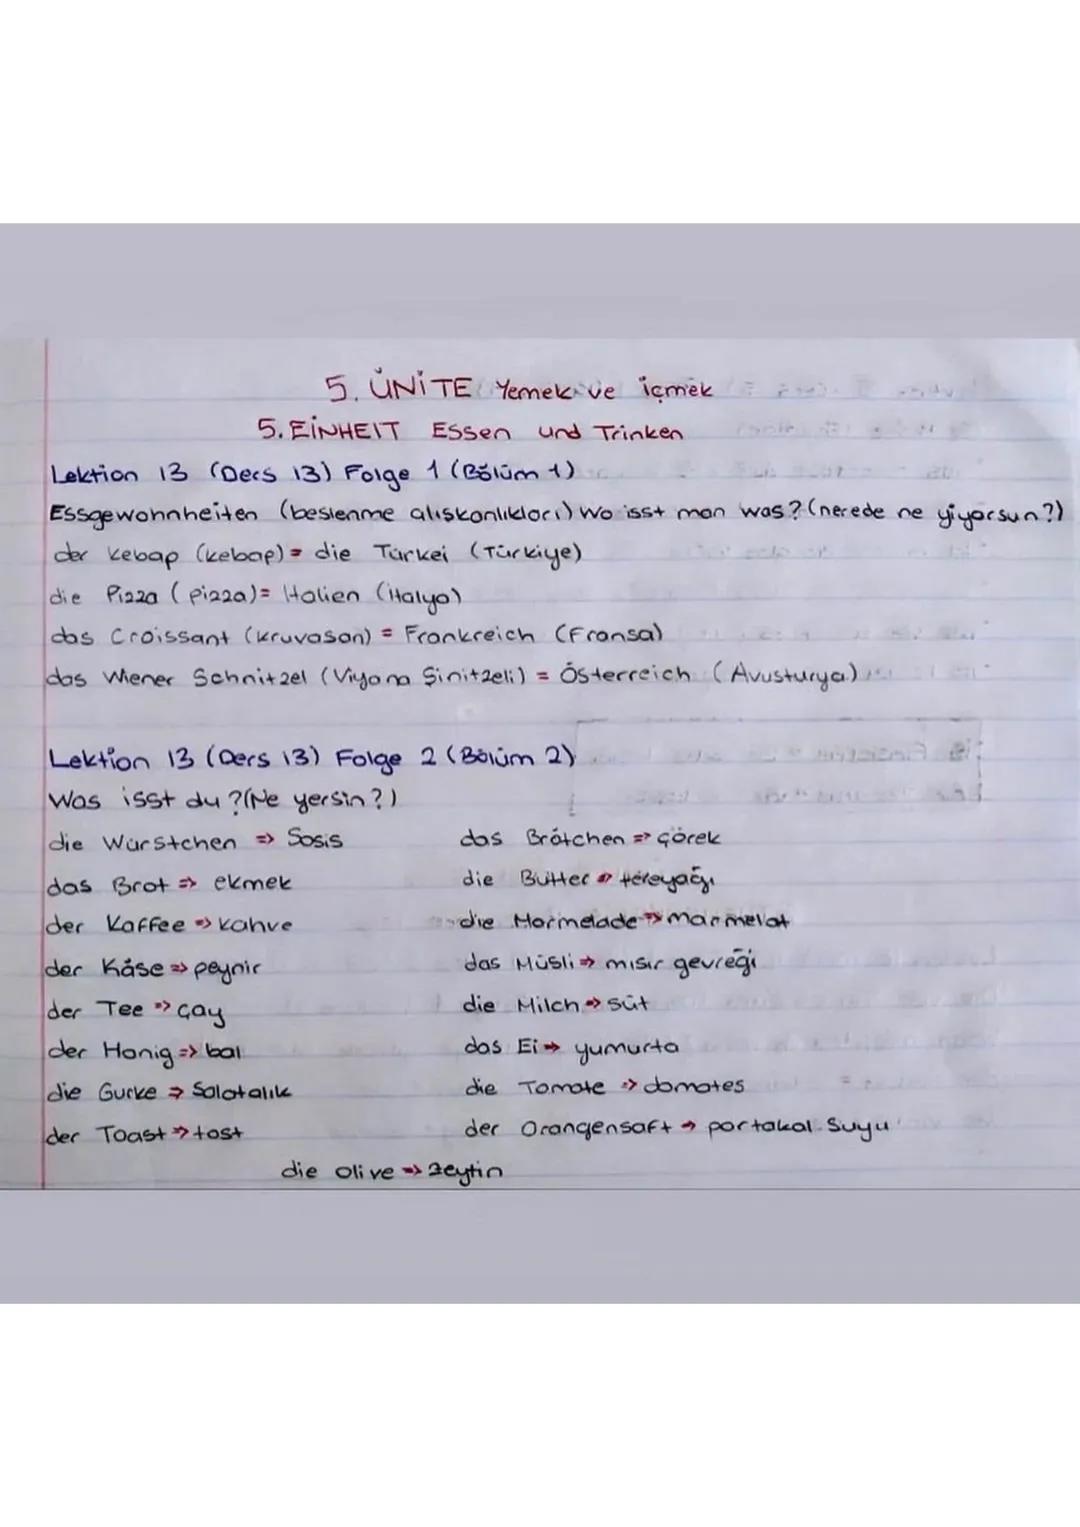 5. ÜNİTE Yemek ve içmek
5. EİNHEIT Essen und Trinken
Lektion 13 (Ders 13) Folge 1 (Bölüm 1)
Essgewohnheiten (beslenme alışkanlıkları) Wo isst man was? (nerede ne yiyorsun?)
der Kebap (kebap) = die Türkei (Türkiye)
die Pizza (pizza) = Italien (italya)
das Croissant (kruvasan) = Frankreich (Fransa)
das Wiener Schnitzel (Viyana Şinitzeli) = Österreich (Avusturya)
Lektion 13 (Ders 13) Folge 2 (Bölüm 2)
Was isst du? (Ne yersin?)
die Würstchen => Sosis das Brötchen => çörek
das Brot => ekmek die Butter => tereyağı
der Kaffee => kahve die Marmelade => marmelat
der Käse => peynir das Müsli => mısır gevreği
der Tee => çay die Milch => süt
der Honig => bal das Ei => yumurta
die Gurke => Salatalık die Tomate => domates
der Toast => tost der Orangensaft => portakal suyu
die Olive => zeytin